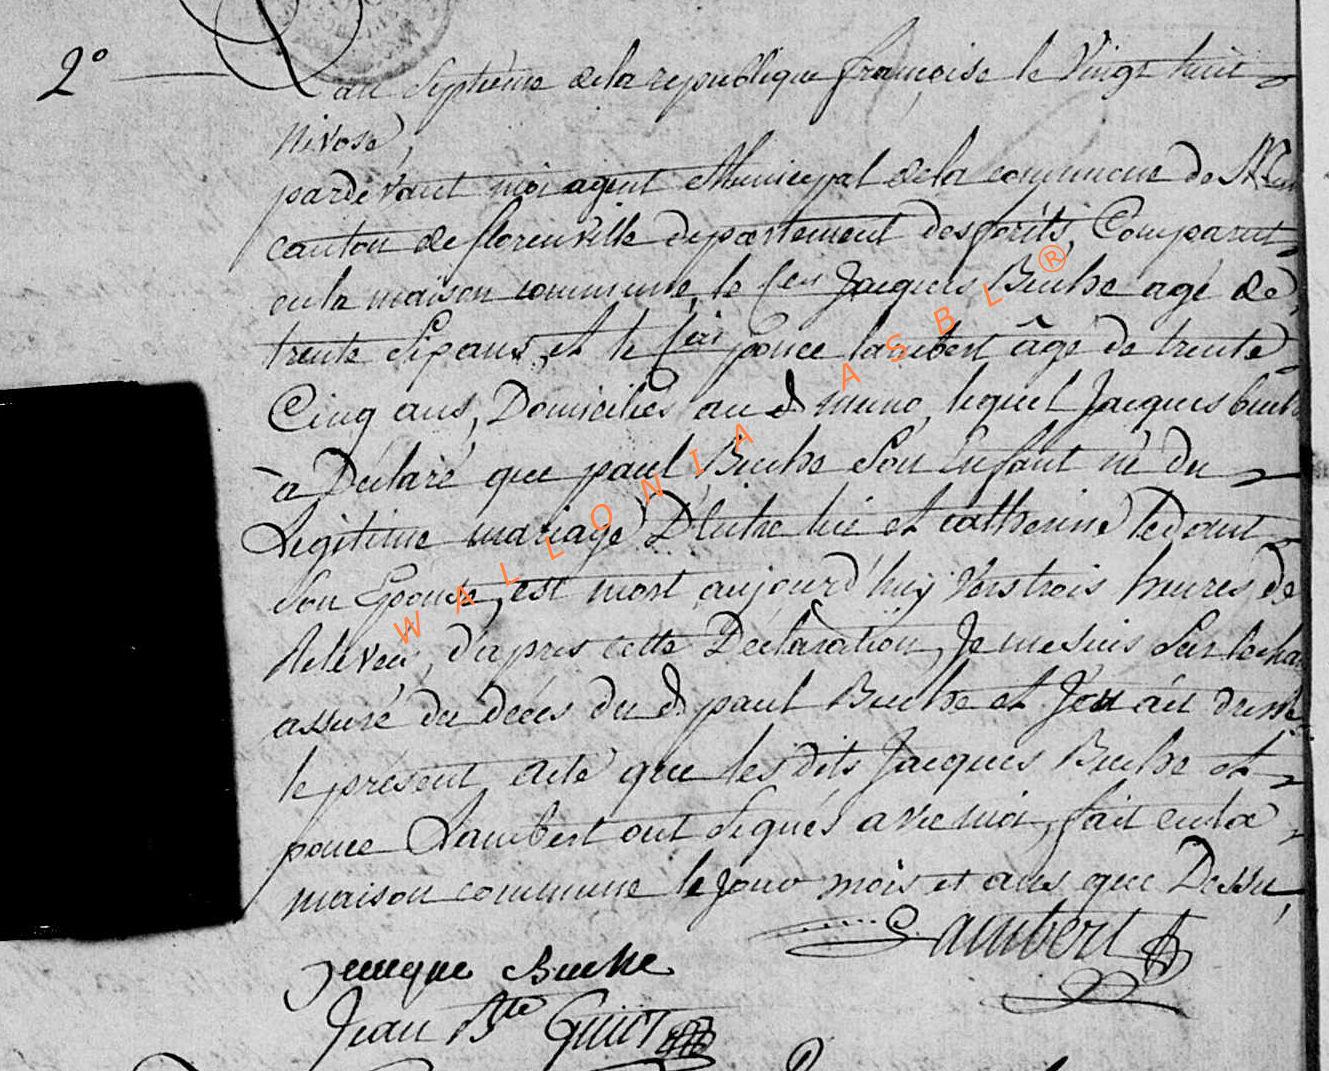 2°
L'an Septième de la republique françoise le Vingt huit
Nivose,
pardevant moi agent Municipal de la commune de
canton de florenville departement des forêts, Comparut
en la maison commune, le Cen Jacques Buche agé de
trente Six ans, et le Cen ponce lambert âgé de trente
Cinq ans, Domiciliés au d muno, lequel Jacques buche
à Déclaré que paul Buche Son Enfant né du
Legitime mariage D'Entre lui et catherine ledant
Son Epouse, est mort aujourd'huy Vers trois heures de
Relevée, d'après cette Déclaration, Je me suis Sur le cha
assuré du décès du d paul Buche et J'en ai dressé
le présent acte que les dits Jacques Buche et
ponce Lambert ont Signés avec moi, fait en la
maison commune le jour mois et ans que Dessus,
Lambert
Jacque Buche
Jean Bte Guiot
WALLONIA ASBL ®